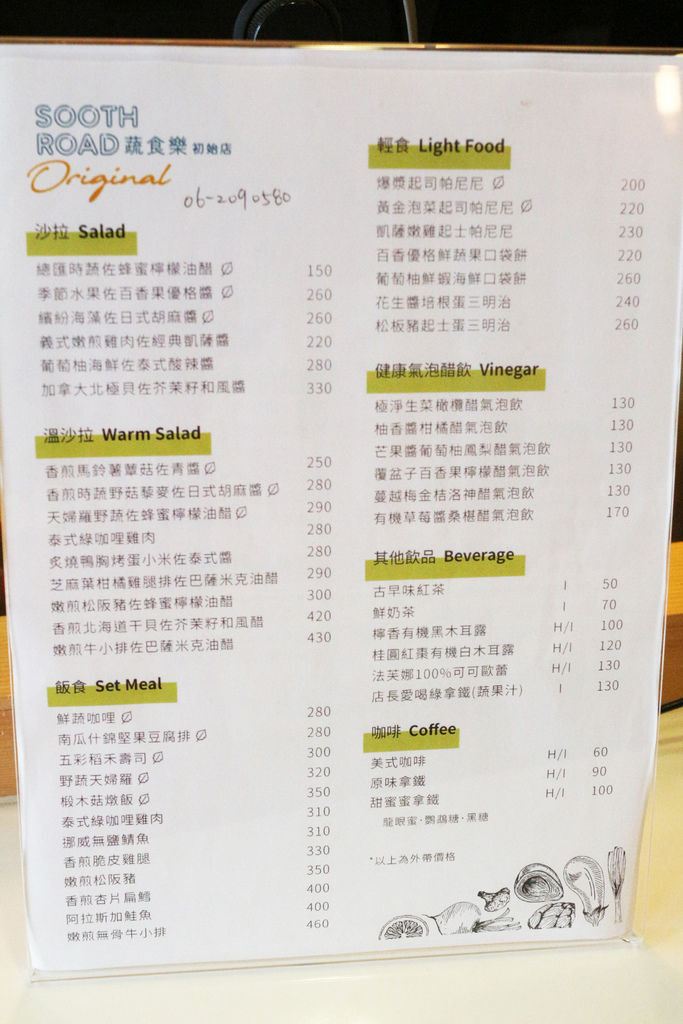 SOOTH
ROAD 蔬食樂 初始店
Original
06-2090580
沙拉 Salad
總匯時蔬佐蜂蜜檸檬油醋 150
季節水果佐百香果優格醬 260
繽紛海藻佐日式胡麻醬 260
義式嫩煎雞肉佐經典凱薩醬 220
葡萄柚海鮮佐泰式酸辣醬 280
加拿大北極貝佐芥茉籽和風醬 330
溫沙拉 Warm Salad
香煎馬鈴薯蕈菇佐青醬 250
香煎時蔬野菇藜麥佐日式胡麻醬 280
天婦羅野蔬佐蜂蜜檸檬油醋 290
泰式綠咖哩雞肉 280
炙燒鴨胸烤蛋小米佐泰式醬 280
芝麻葉柑橘雞腿排佐巴薩米克油醋 290
嫩煎松阪豬佐蜂蜜檸檬油醋 300
香煎北海道干貝佐芥茉籽和風醋 420
嫩煎牛小排佐巴薩米克油醋 430
飯食 Set Meal
鮮蔬咖哩 280
南瓜什錦堅果豆腐排 280
五彩稻禾壽司 300
野蔬天婦羅 320
椴木菇燉飯 350
泰式綠咖哩雞肉 310
挪威無鹽鯖魚 310
香煎脆皮雞腿 330
嫩煎松阪豬 350
香煎杏片扁鱈 400
阿拉斯加鮭魚 400
嫩煎無骨牛小排 460
輕食 Light Food
爆漿起司帕尼尼 200
黃金泡菜起司帕尼尼 220
凱薩嫩雞起士帕尼尼 230
百香優格鮮蔬果口袋餅 220
葡萄柚鮮蝦海鮮口袋餅 260
花生醬培根蛋三明治 240
松板豬起士蛋三明治 260
健康氣泡醋飲 Vinegar
極淨生菜橄欖醋氣泡飲 130
柚香醬柑橘醋氣泡飲 130
芒果醬葡萄柚鳳梨醋氣泡飲 130
覆盆子百香果檸檬醋氣泡飲 130
蔓越梅金桔洛神醋氣泡飲 130
有機草莓醬桑椹醋氣泡飲 170
其他飲品 Beverage
古早味紅茶 I 50
鮮奶茶 I 70
檸香有機黑木耳露 H/I 100
桂圓紅棗有機白木耳露 H/I 120
法芙娜100%可可歐蕾 H/I 130
店長愛喝綠拿鐵(蔬果汁) I 130
咖啡 Coffee
美式咖啡 H/I 60
原味拿鐵 H/I 90
甜蜜蜜拿鐵 H/I 100
龍眼蜜·鸚鵡糖·黑糖
*以上為外帶價格